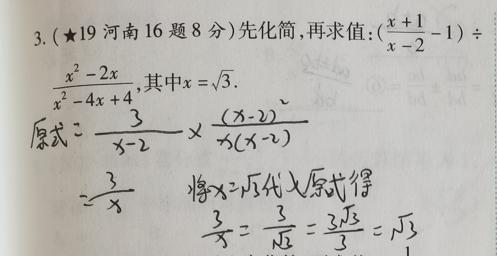 3. (★19 河南 16 题 8 分)先化简,再求值:(\frac{x+1}{x-2}-1) ÷
\frac{x^2-2x}{x^2-4x+4},其中x=\sqrt{3}.
原式=\frac{3}{x-2}×\frac{(x-2)^2}{x(x-2)}
=\frac{3}{x} 将x=\sqrt{3}代入原式得
\frac{3}{x}=\frac{3}{\sqrt{3}}=\frac{3\sqrt{3}}{3}=\sqrt{3}